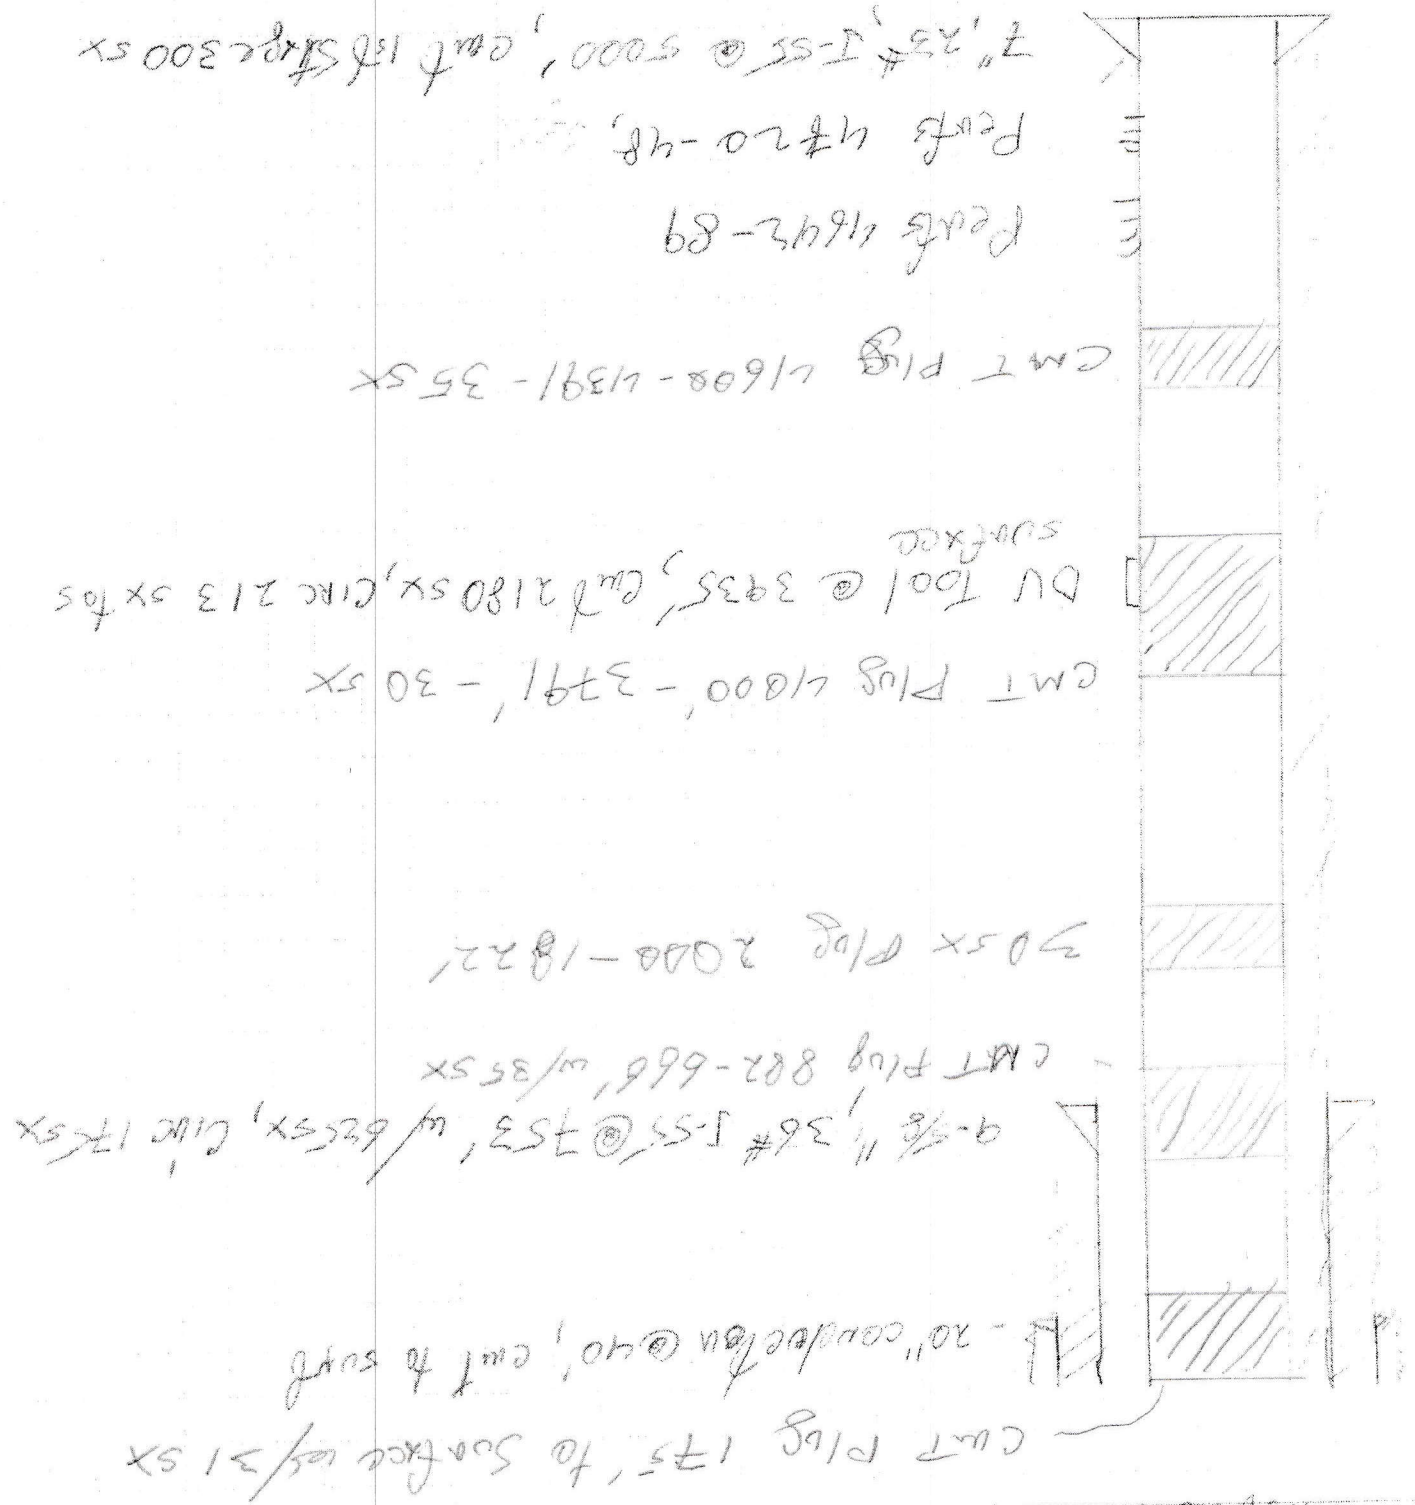 CMT Plug 175' to Surface w/31 sx
- 20" conductor @ 40', cmt to surf
9-5/8", 36# J-55 @ 753' w/ 625 sx, Circ 175 sx
- CMT Plug 882-666' w/35 sx
30 sx Plug 2000-1822'
CMT Plug 4000'-3791' - 30 sx
DV Tool @ 3935', cmt 2180 sx, circ 213 sx to s
surface
CMT Plug 4600-4391 - 35 sx
Perfs 4642-89
Perfs 4720-48'
7", 23#, J-55 @ 5000', cmt 1st Stage 300 sx